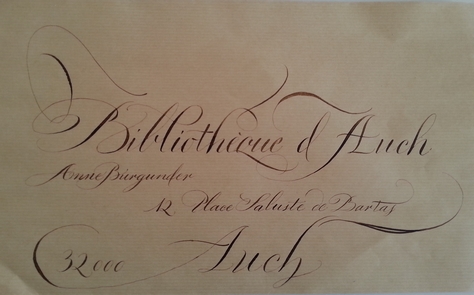 Bibliothèque d'Auch
Anne Burgunder
12 Place Saluste de Bartas
32000 Auch